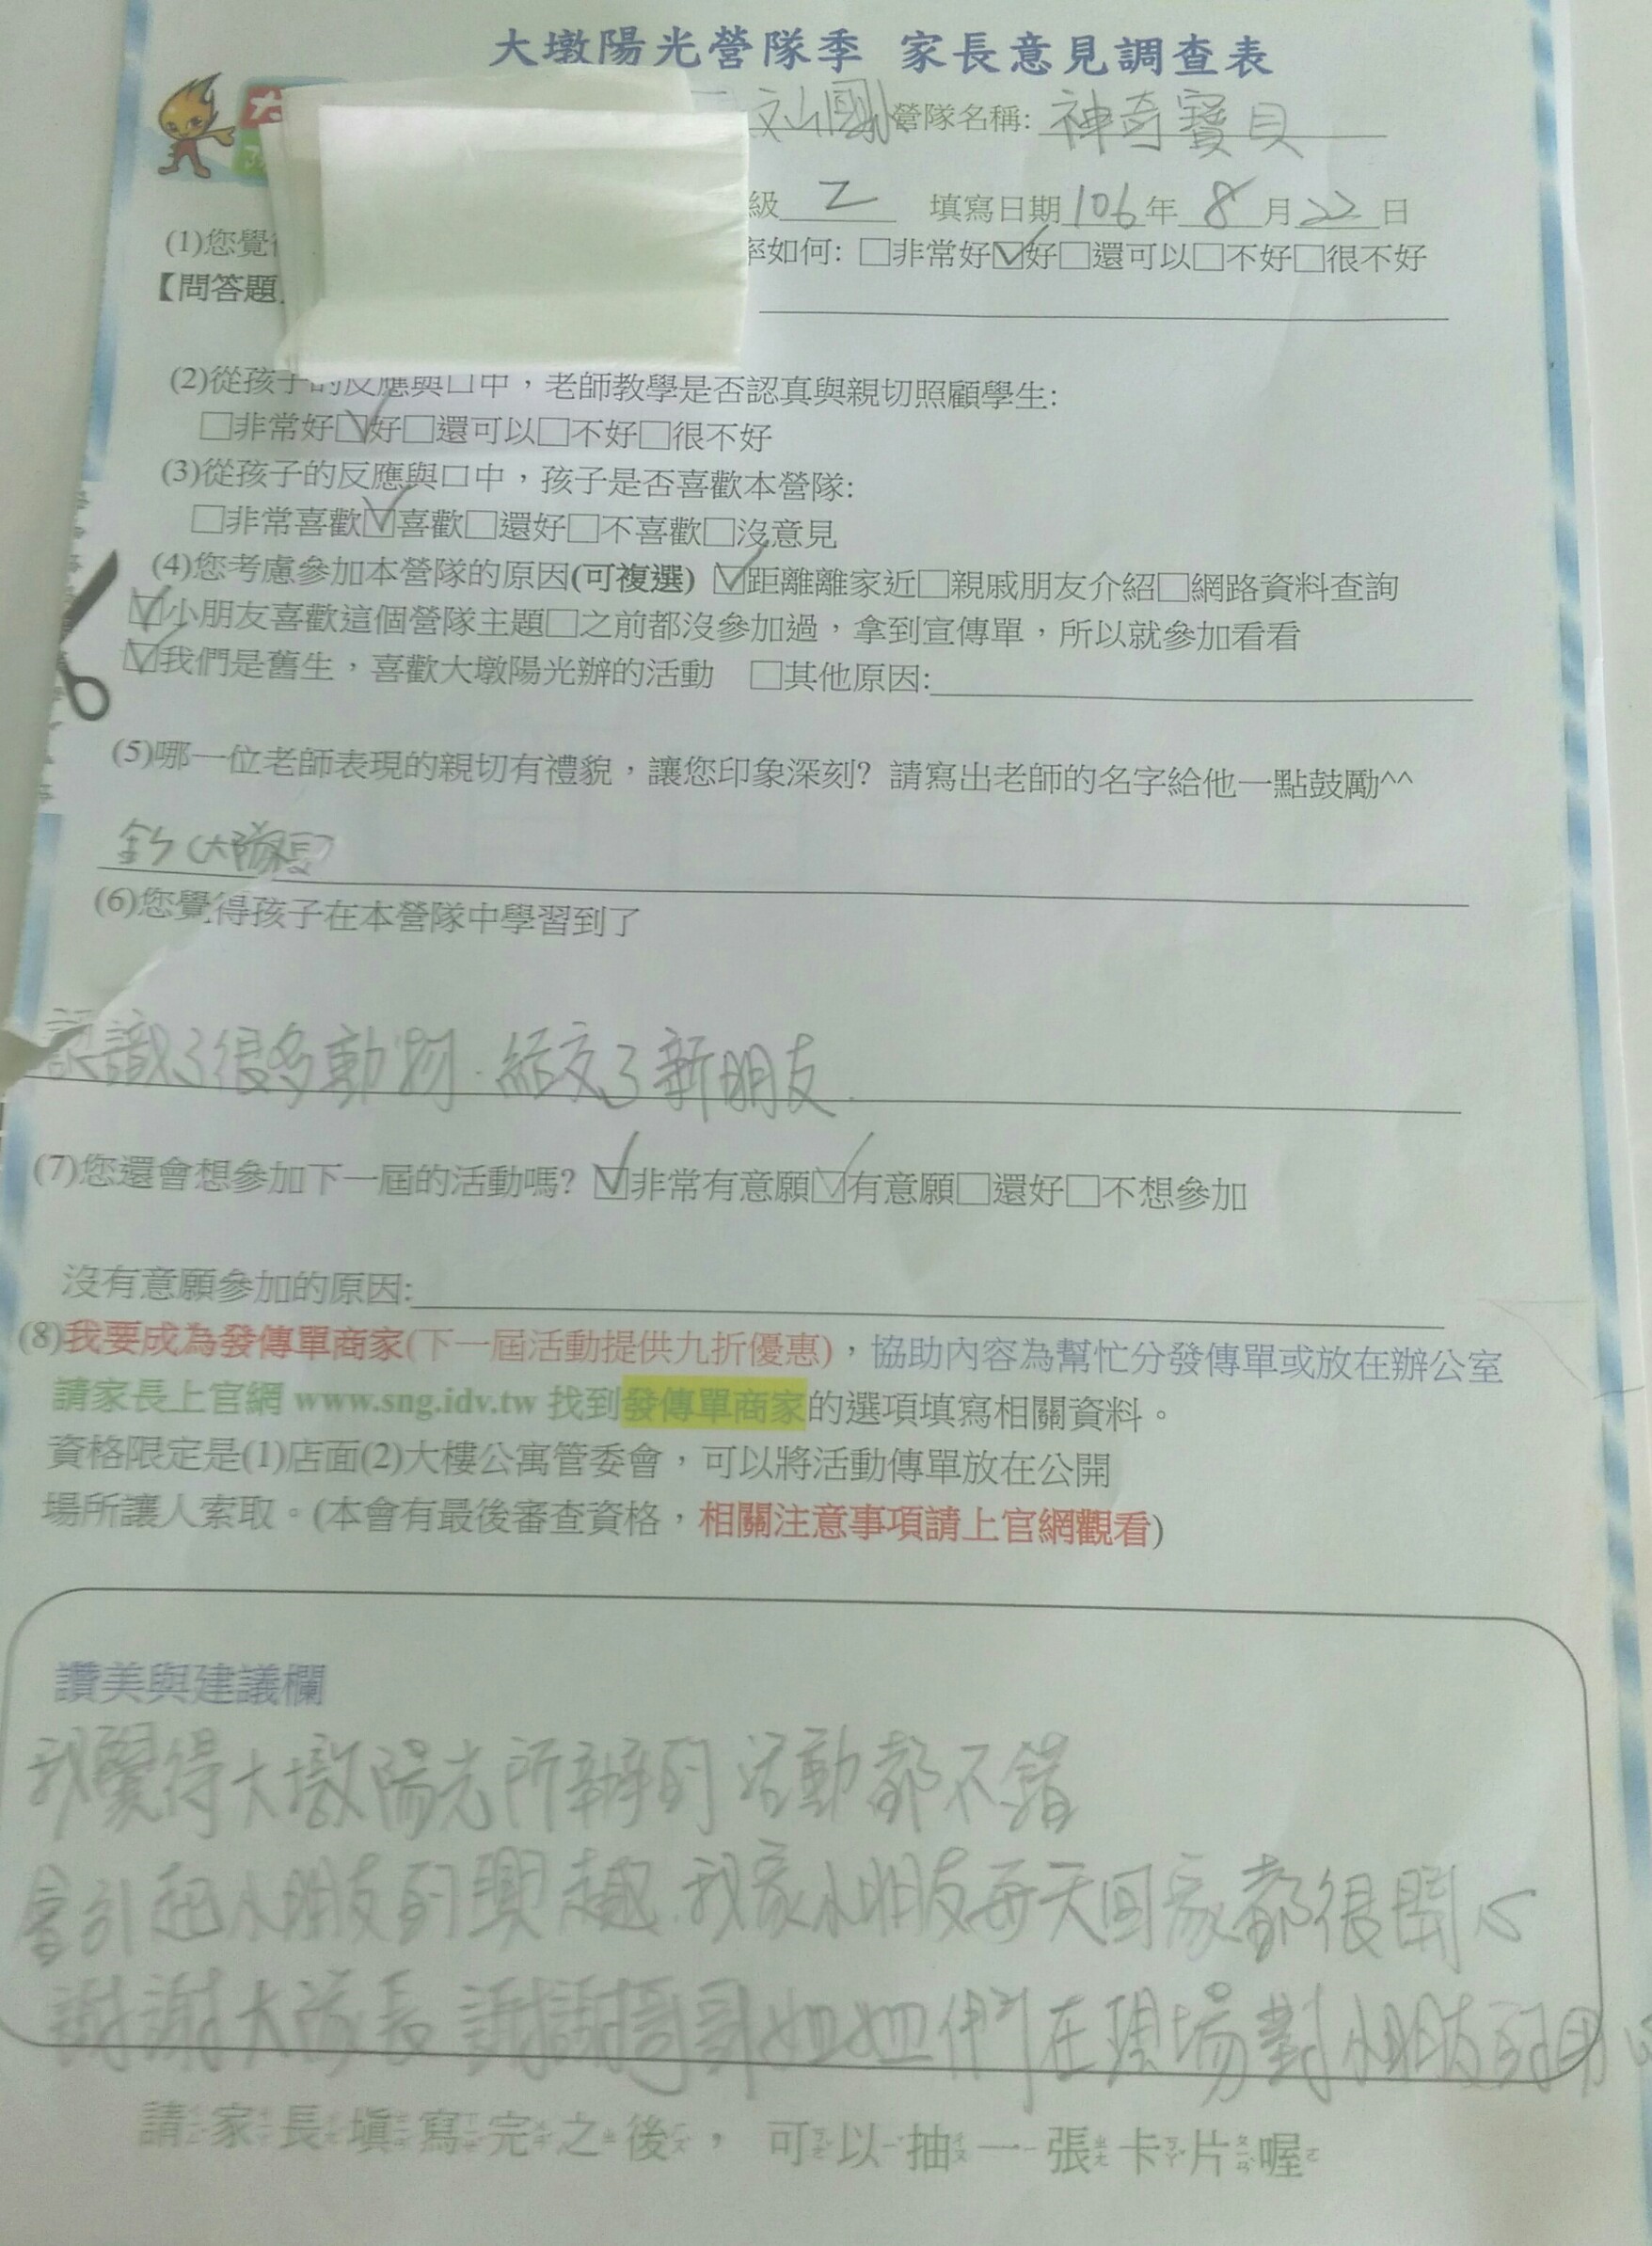 大墩陽光營隊季 家長意見調查表
文山國小 營隊名稱: 神奇寶貝
級 2 填寫日期 106 年 8 月 22 日
(1)您覺 率如何: □非常好☑好□還可以□不好□很不好
【問答題
(2)從孩子的反應與口中，老師教學是否認真與親切照顧學生:
□非常好☑好□還可以□不好□很不好
(3)從孩子的反應與口中，孩子是否喜歡本營隊:
□非常喜歡☑喜歡□還好□不喜歡□沒意見
(4)您考慮參加本營隊的原因(可複選) ☑距離離家近□親戚朋友介紹□網路資料查詢
☑小朋友喜歡這個營隊主題□之前都沒參加過，拿到宣傳單，所以就參加看看
☑我們是舊生，喜歡大墩陽光辦的活動 □其他原因:
(5)哪一位老師表現的親切有禮貌，讓您印象深刻? 請寫出老師的名字給他一點鼓勵^^
(大隊長)
(6)您覺得孩子在本營隊中學習到了
認識了很多動物.結交了新朋友.
(7)您還會想參加下一屆的活動嗎? ☑非常有意願☑有意願□還好□不想參加
沒有意願參加的原因:
(8)我要成為發傳單商家(下一屆活動提供九折優惠)，協助內容為幫忙分發傳單或放在辦公室
請家長上官網 www.sng.idv.tw 找到發傳單商家的選項填寫相關資料。
資格限定是(1)店面(2)大樓公寓管委會，可以將活動傳單放在公開
場所讓人索取。(本會有最後審查資格，相關注意事項請上官網觀看)
讚美與建議欄
我覺得大墩陽光所辦的活動都不錯
會引起小朋友的興趣.我家小朋友每天回家都很開心
謝謝大隊長 謝謝哥哥姐姐們在現場對小朋友的用心
請家長填寫完之後，可以抽一張卡片喔